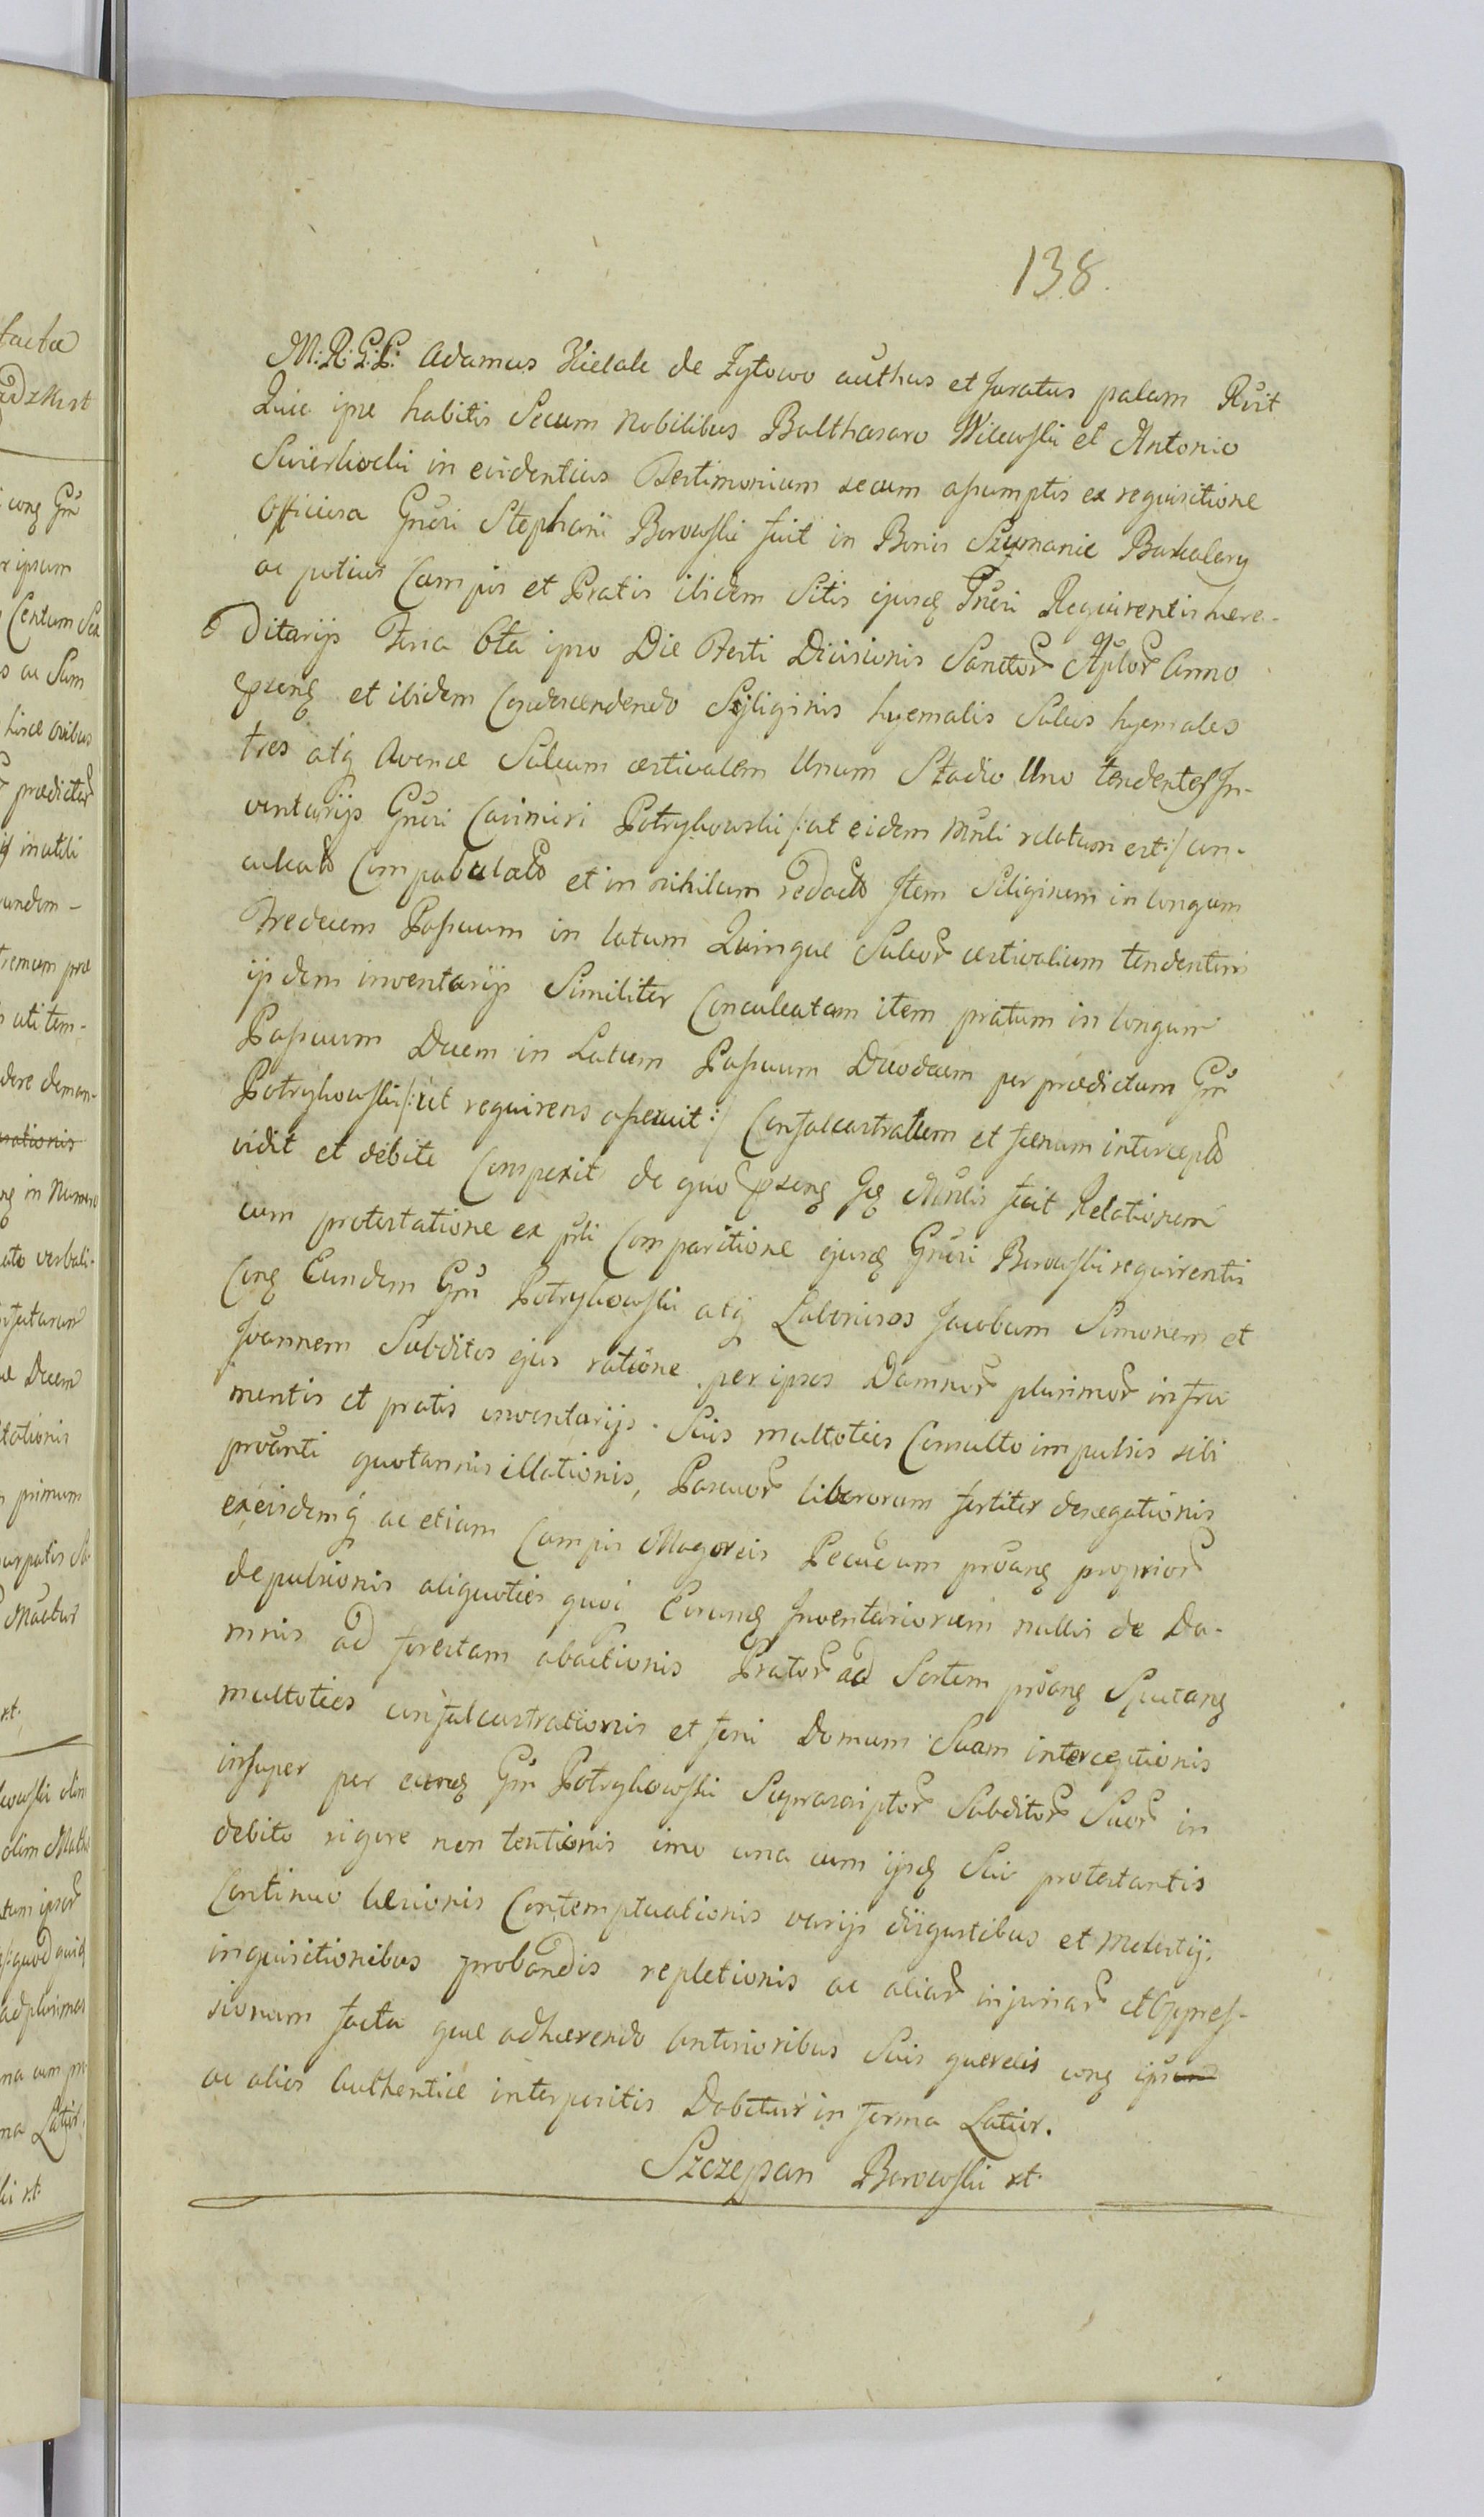 138.
M: R: G: L: Adamus Kielak de Zytowo authus et Juratus palam Rĕit
Quia ipse habitis Secum Nobilibus Balthasaro Wilewski et Antonio
Swierkocki in evidentius Testimonium secum assumptis ex requisitione
Officiosa Gnŕi Stephani Borowski fuit in Bonis Szymanie Bakalary
ac potius Campis et Pratis ibidem Sitis ejusq Gnŕi Requirentis haere-
ditarijs Feria 6ta ipso Die Festi Divisionis Sanctor Aplor Anno
prseng et ibidem Condescendendo Syliginis hyemalis Sulcos hyemales
tres atq Avenae Sulcum aestivalem Unum Stadio Uno tendentes In-
ventarijs Gnŕi Casimiri Potrykowski /: ut eidem Mnli relatum est :/ con-
culcato Compabulato et in nihilum redacto Item Siliginem in longum
Tredecem Passuum in latum Quinque Sulcor aestivalium tendentem
ijsdem inventarijs Similiter Conculcatam item pratum in longum
Passuum Decem in Latum Passuum Duodecem per praedictum Gnm
Potrykowski /: ut requirens asseruit :/ Confalcastratum et faenum intercepto
vidit et debite Comperit de quo prseng Gq Mnlis fecit Relationem
cum protestatione ex prli Comparitione ejusq Gnŕi Borowski requirentis
Cong Eundem Gnm Potrykowski atq Laboriosos Jacobum Simonem et
Joannem Subditos ejus ratione per ipsos Damnor plurimor in fru
mentis et pratis inventarijs Suis multoties Consulto impulsis sibi
proanti quotannis illationis, Pascuor liberorum fortiter denegationis
ex eisdemq ac etiam Campis Magoreis Pecudum proang proprior
depulsionis aliquoties quoi Eorumq Inventariorum nullis de Da-
mnis ad forestam abactionis Prator ad Sortem proang Spectang
multoties confalcastrationis et feni Domum Suam interceptionis
insuper per eunq Gnm Potrykowski Suprascriptor Subditor Suor in
debito rigore non tentionis imo una cum ijsq Sui protestantis
Continuo laesionis Contemptuationis varijs disgustibus et Molestij.
inquisitionibus probandis repletionis ac aliar injuriar et Oppres-
sionum facta quae adhaerendo anterioribus Suis querelis cong ipsum
ac alios Authentice interpositis Dabitur in forma Latior.
Szczepan Borowski xt.